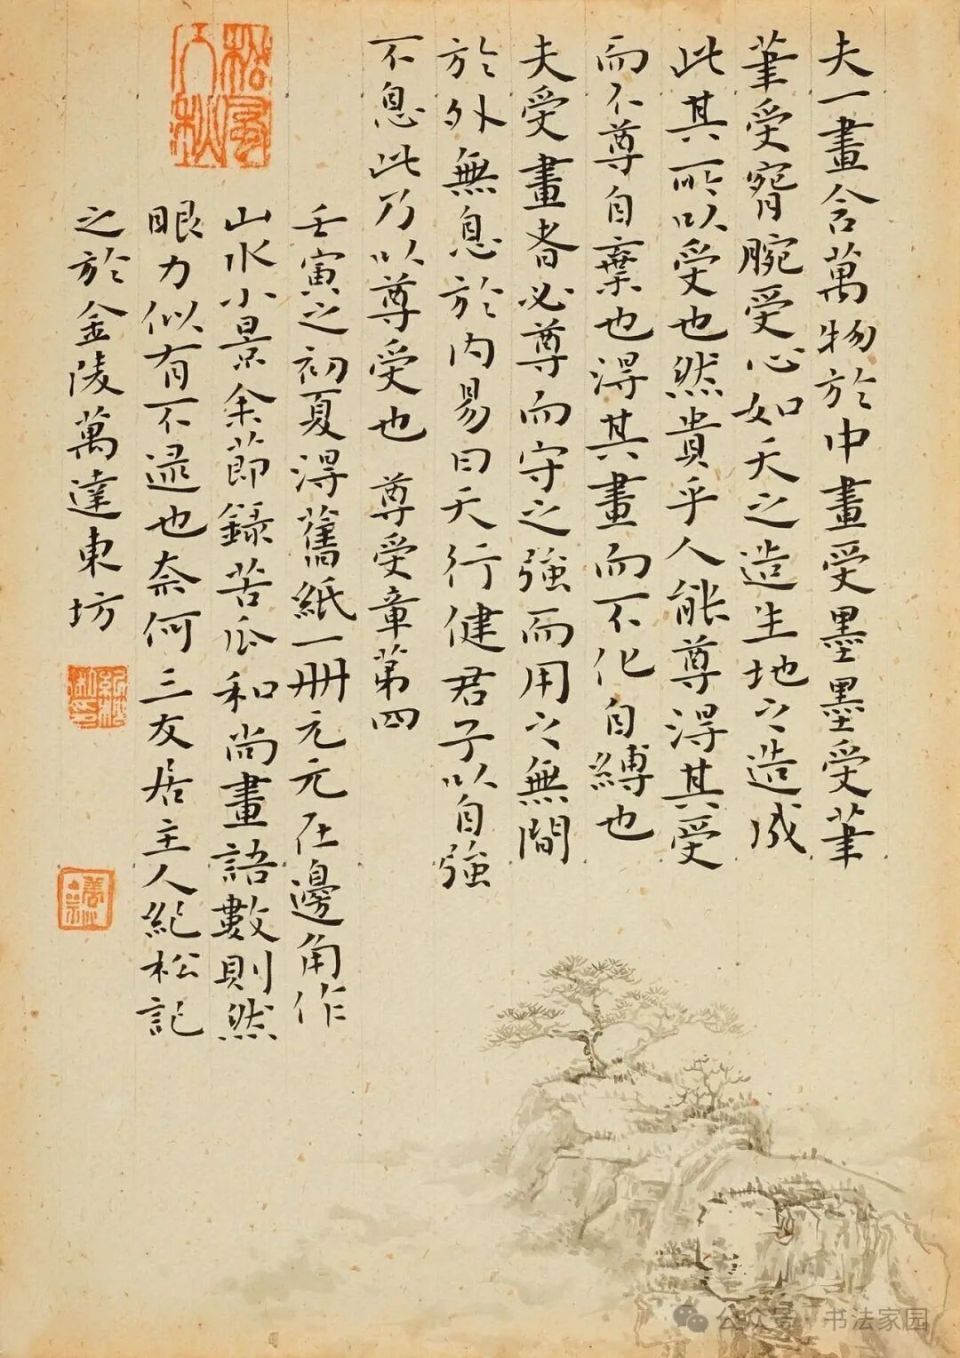 夫一畫含萬物於中畫受墨墨受筆
筆受腕腕受心如天之造生地之造成
此其所以受也然貴乎人能尊得其受
而不尊自棄也得其畫而不化自縛也
夫受畫者必尊而守之強而用之無間
於外無息於内易曰天行健君子以自強
不息此乃以尊受之也 尊受章第四
壬寅之初夏得舊紙一冊元元在邊角作
山水小景余節錄苦瓜和尚畫語數則然
眼力似有不逮也奈何三友居主人紀松記
之於金陵萬達東坊
公众号·书法家园